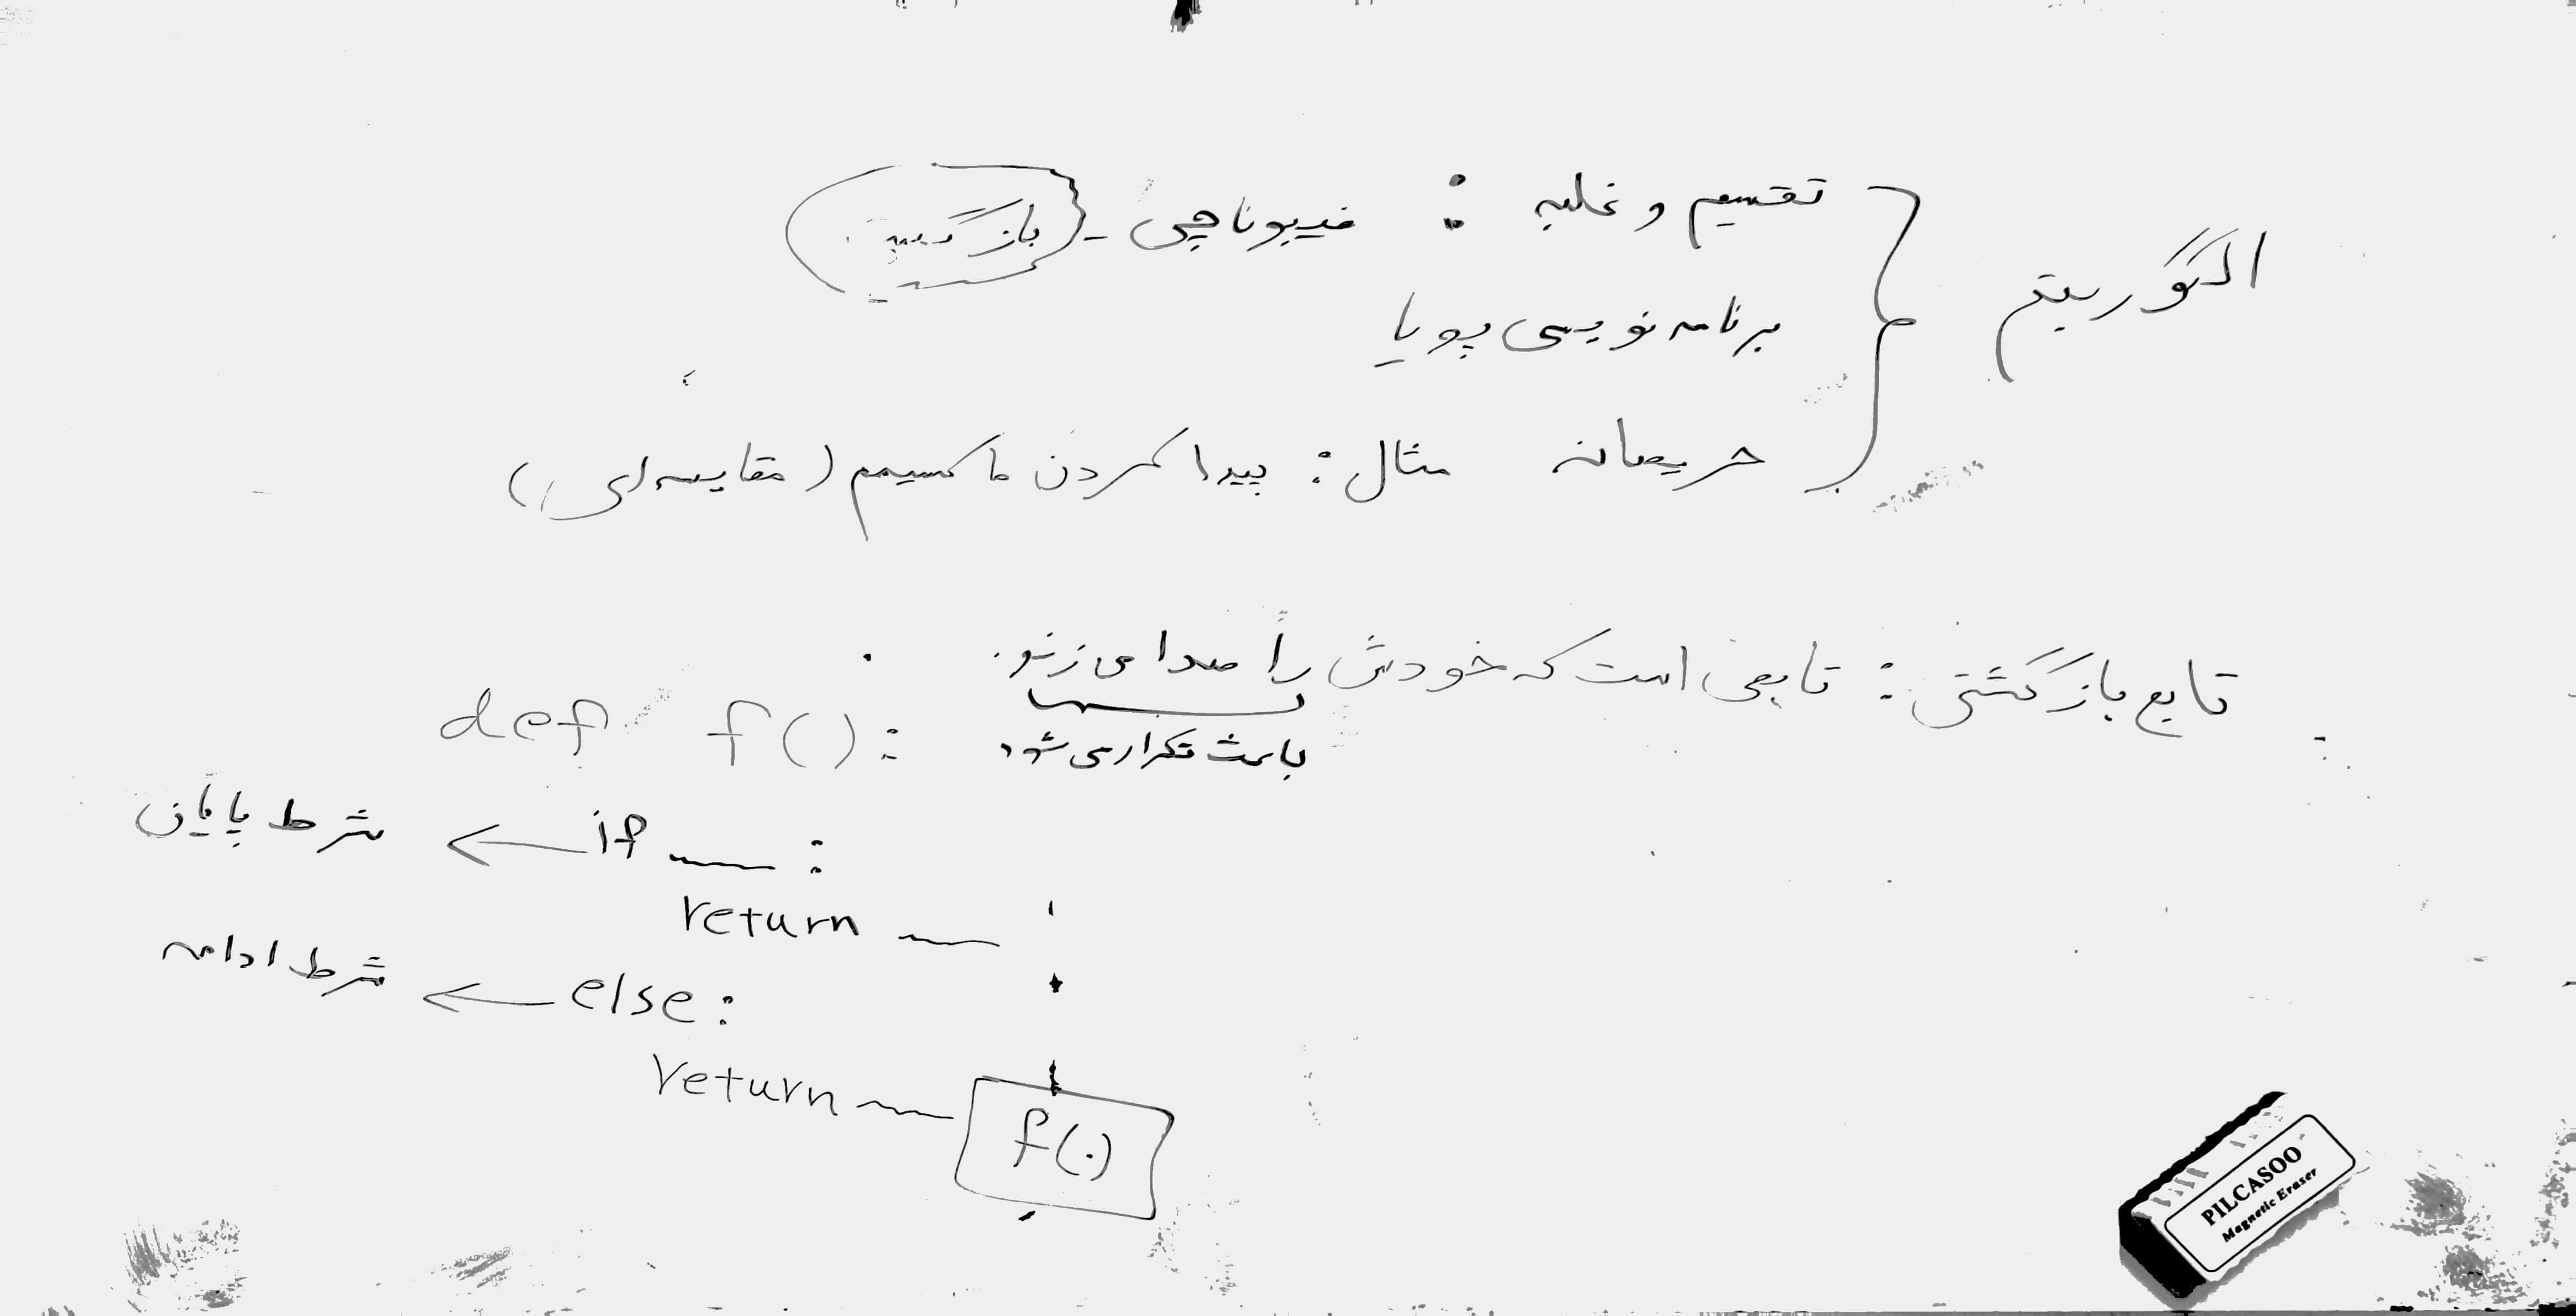 الگوریتم
تقسیم و غلبه : فیبوناچی - (بازگشتی)
برنامه نویسی پویا
حریصانه مثال : پیدا کردن ماکسیمم (مقایسه ای)
تابع بازگشتی : تابعی است که خودش را صدا می زند.
باعث تکرار می شود
def f():
if ___ : ← شرط پایان
return ___
else: ← شرط ادامه
return ___ f(.)
PILCASOO
Magnetic Eraser